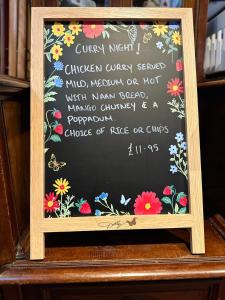 CURRY NIGHT!
CHICKEN CURRY SERVED
MILD, MEDIUM OR HOT
WITH NAAN BREAD,
MANGO CHUTNEY & A
POPPADUM.
CHOICE OF RICE OR CHIPS
£11.95